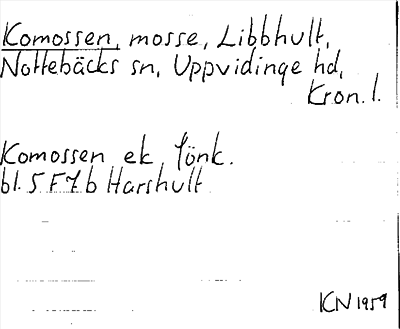 Komossen, mosse, Libbhult,
Nottebäcks sn, Uppvidinge hd,
Kron. l.
Komossen ek. Jönk.
bl. 5 F 7 b Harshult
KN 1959